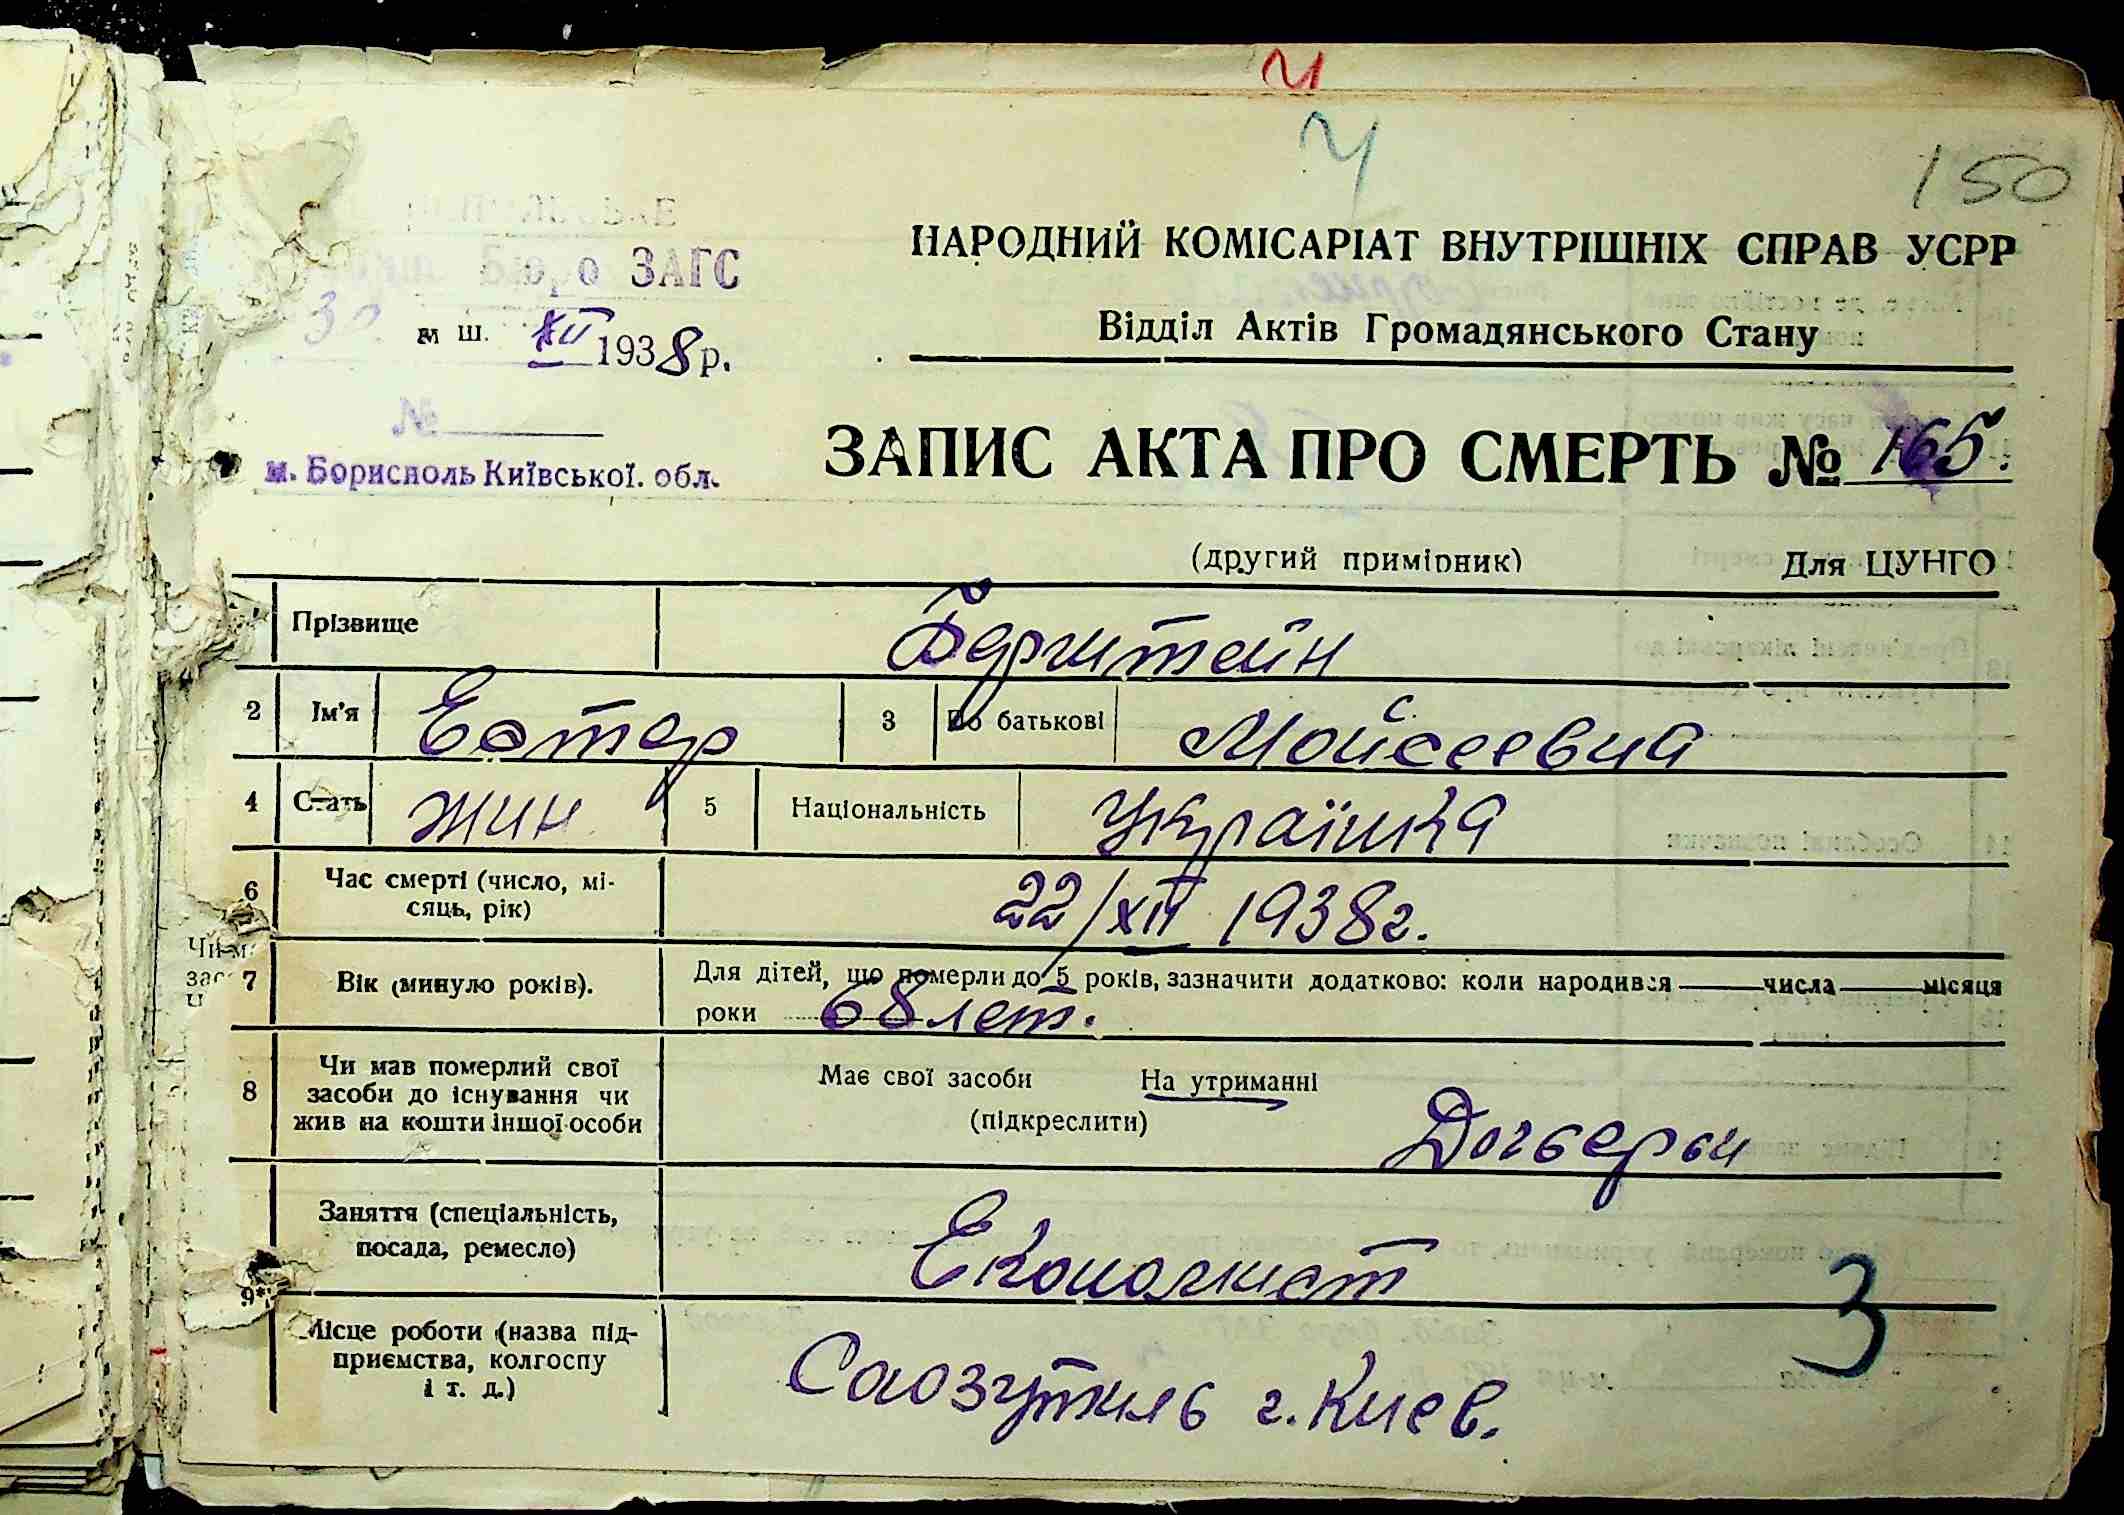 Ч
Ч
150
Бюро ЗАГС
30 м ш. XII 1938 р.
№
м. Бориспіль Київської. обл.
НАРОДНИЙ КОМІСАРІАТ ВНУТРІШНІХ СПРАВ УСРР
Відділ Актів Громадянського Стану
ЗАПИС АКТА ПРО СМЕРТЬ № 165.
(другий примірник) Для ЦУНГО
Прізвище Берштейн
2 Ім'я Естер 3 По батькові Мойсеевна
4 Стать жин 5 Національність Українка
6 Час смерті (число, мі-
сяць, рік) 22/XII 1938 г.
7 Вік (минуло років). Для дітей, що померли до 5 років, зазначити додатково: коли народився числа місяця
роки 68 лет.
8 Чи мав померлий свої
засоби до існування чи
жив на кошти іншої особи
Має свої засоби На утриманні
(підкреслити)
Дочьеры
9* Заняття (спеціальність,
посада, ремесло) Економист
Місце роботи (назва під-
приємства, колгоспу
і т. д.)
Союзутиль г. Киев.
3